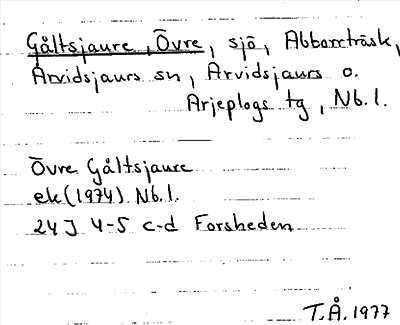 Gåltsjaure, Övre, sjö, Abborrträsk,
Arvidsjaurs sn, Arvidsjaurs o.
Arjeplogs tg, Nb.l.
Övre Gåltsjaure
ek (1974) Nb.l.
24J 4-5 c-d Forsheden
T.Å. 1977